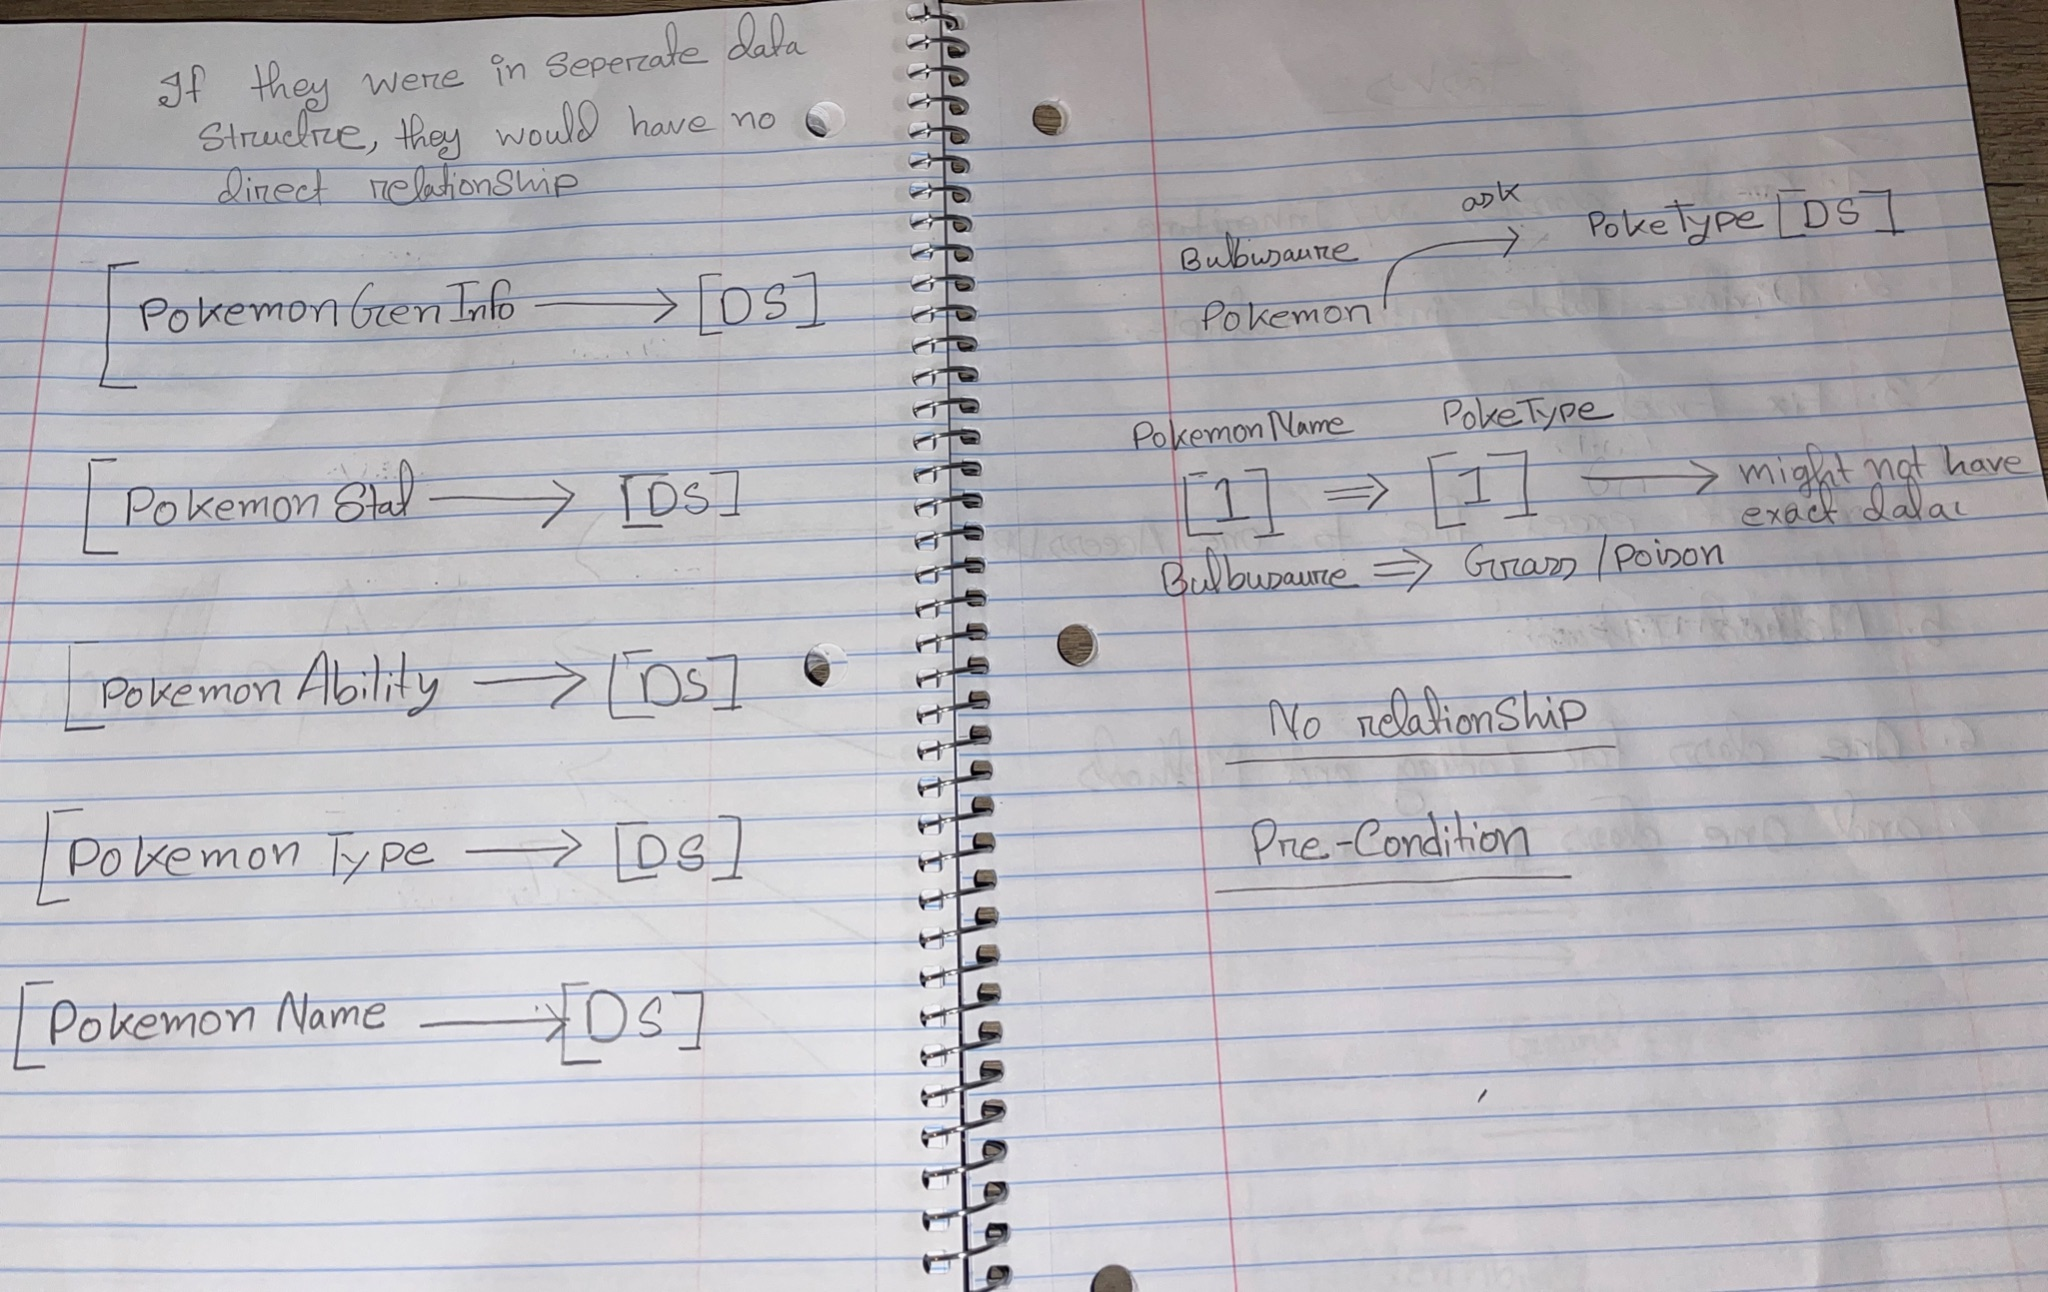 If they were in seperate data
Structre, they would have no
direct relationship
[Pokemon Gen Info → [DS]
[Pokemon Stat → [DS]
[Pokemon Ability → [DS]
[Pokemon Type → [DS]
[Pokemon Name → [DS]
ask
Bulbusaure
PokeType [DS]
Pokemon
Pokemon Name
PokeType
[1] ⇒ [1] → might not have
exact data
Bulbusaure ⇒ Grass / Poison
No relationship
Pre-Condition